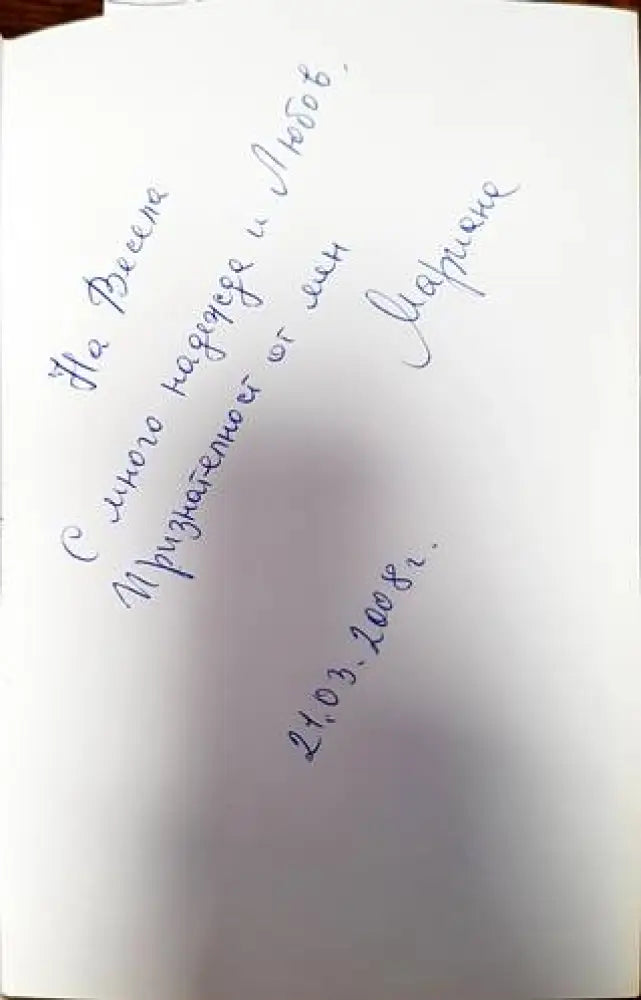 На Весела
С много надежда и Любов.
Признателност от мен
Мариана
21.03.2008г.